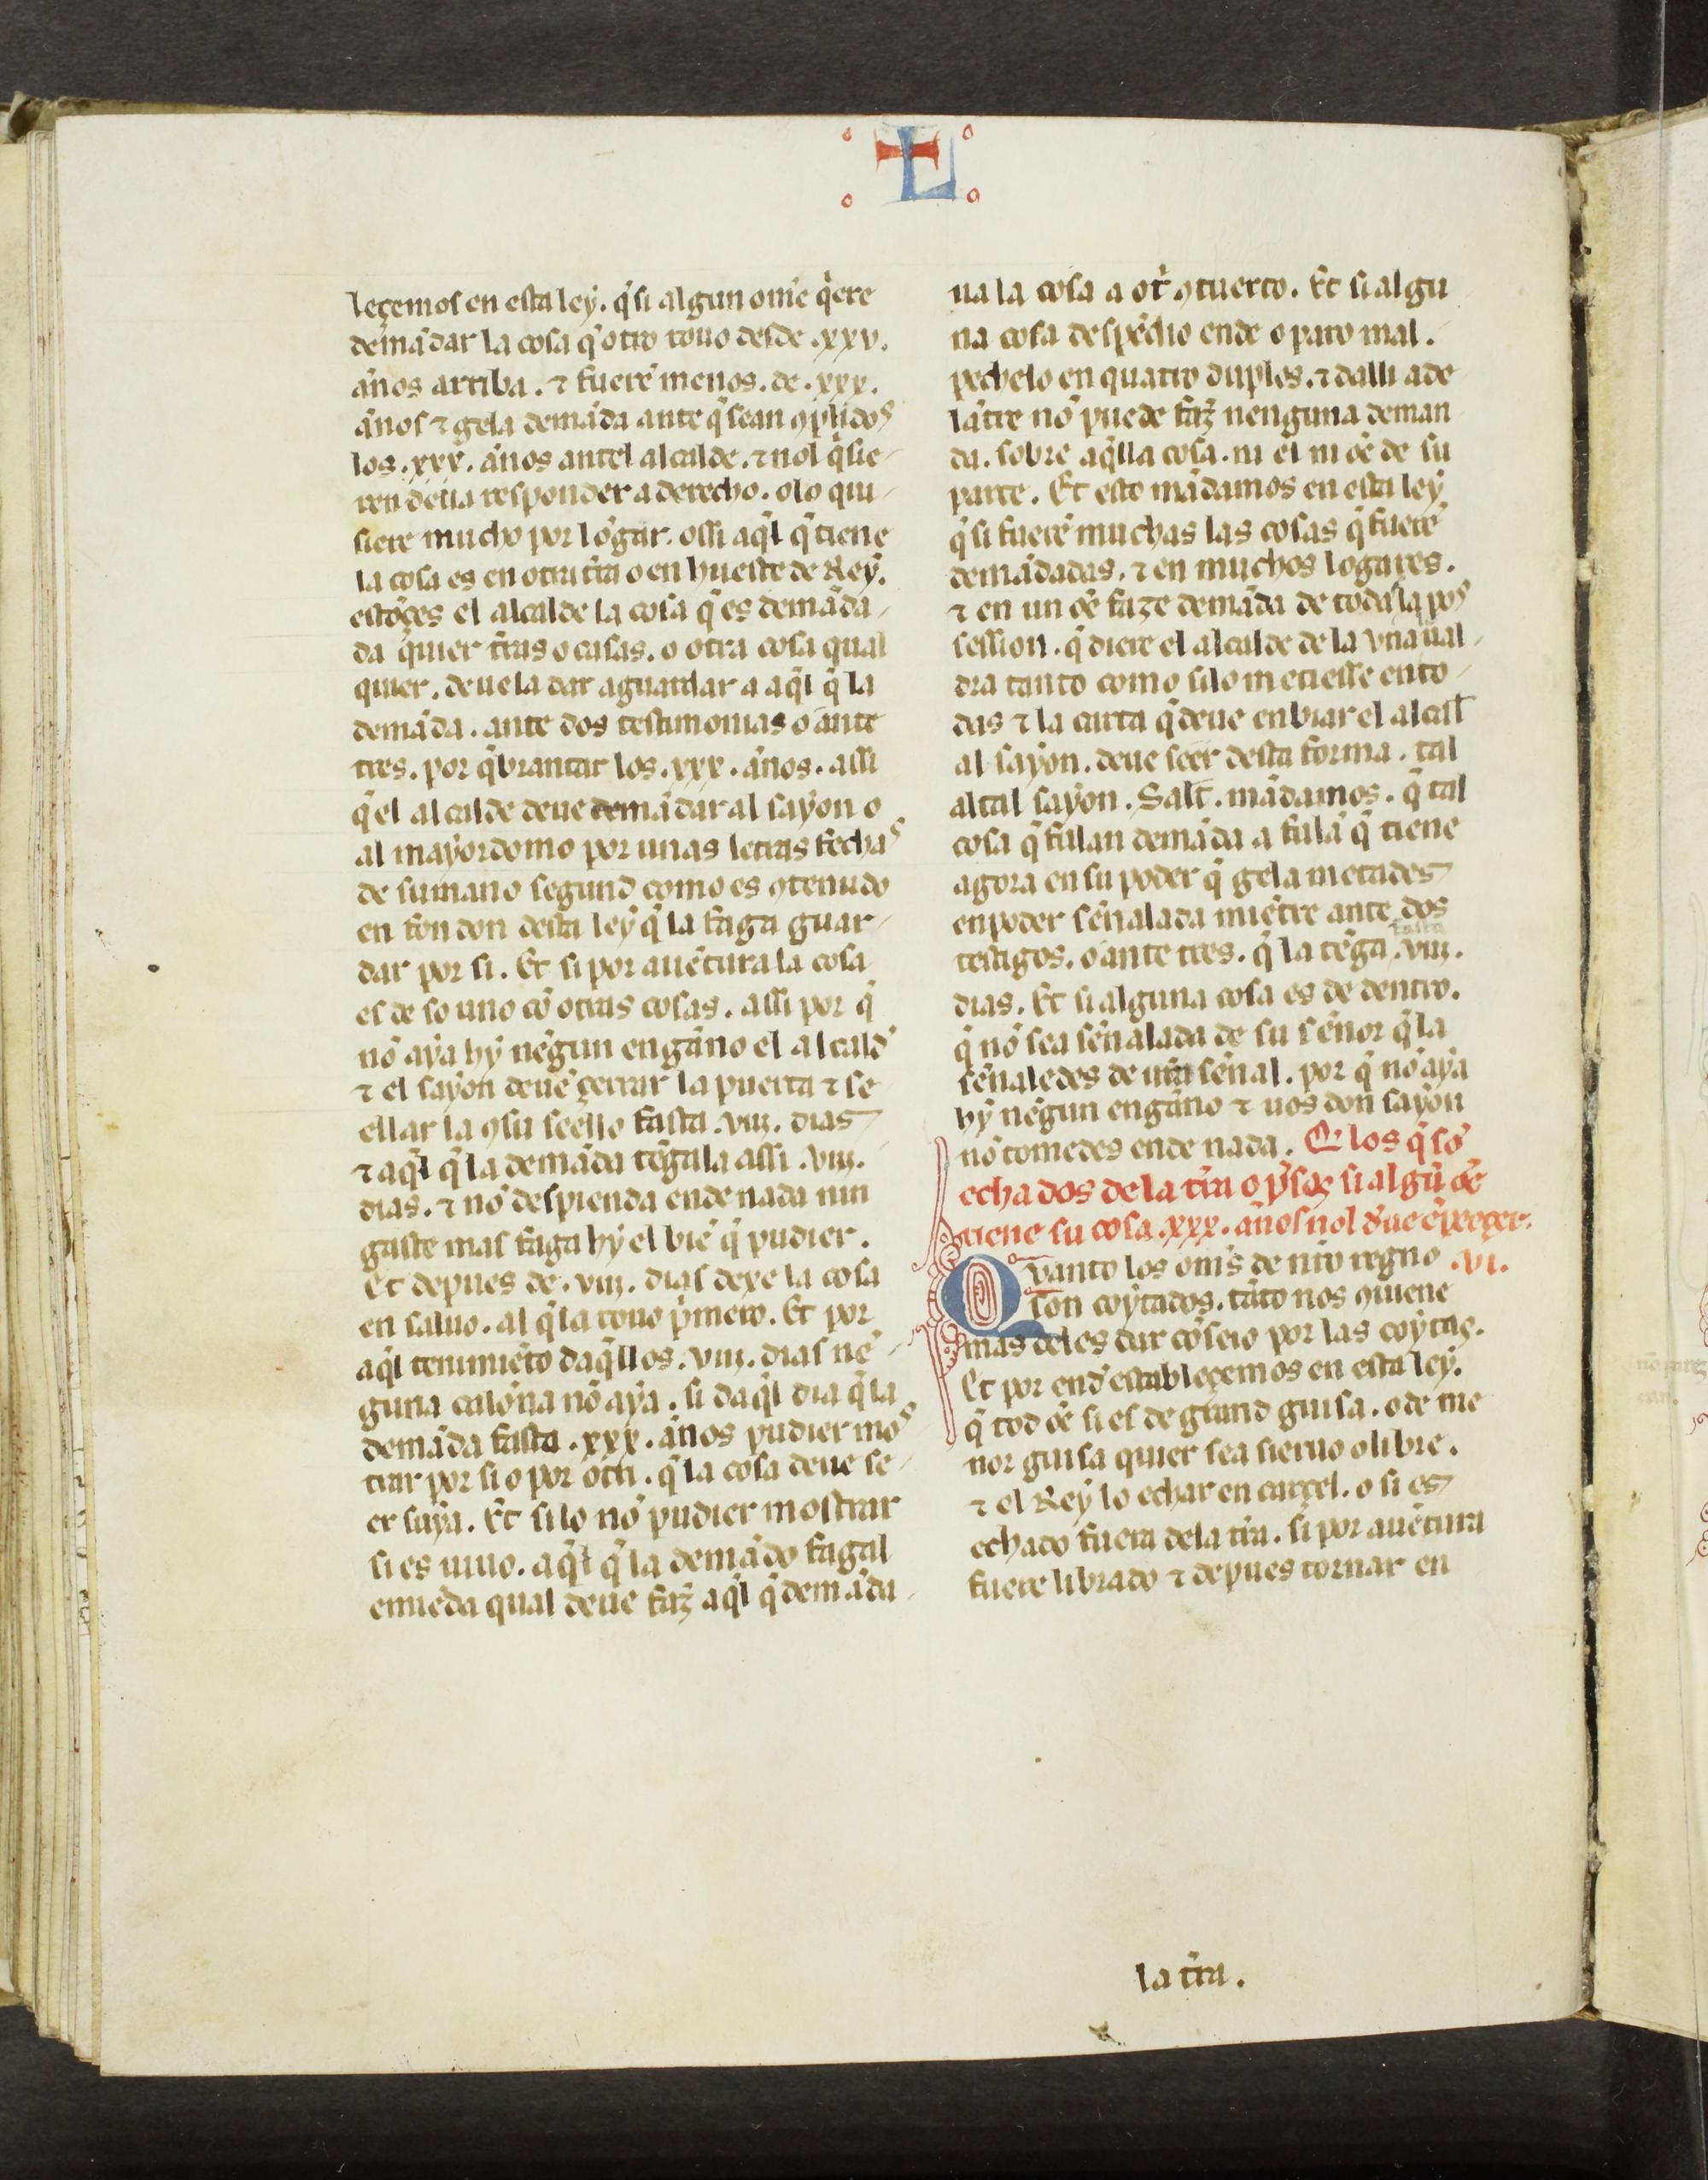 Ł
leçemos en esta ley. q̃ si algun ome q̃ere
demãdar la cosa q̃ otro touo desde .xxv.
años arriba. ⁊ fuerẽ menos. de .xxx.
años ⁊ gela demãda ante q̃ sean ꝯplidos
los .xxx. años antel alcalde. ⁊ nol q̃sie-
ren deua responder a derecho. o lo qui-
siere mucho por lõgar. o ssi aq̃l q̃ tiene
la cosa es en otra tr̃ra o en hueste de Rey.
estõçes el alcalde la cosa q̃ es demãda-
da quier tr̃ras o casas. o otra cosa qual
quier. deue la dar a guardar a aq̃l q̃ la
demãda. ante dos testimonias o ante
tres. por q̃brantar los .xxx. años. assi
q̃ el alcalde deue demãdar al sayon o
al mayordomo por unas letras fechas
de su mano segund como es ꝯtenudo
en fondon desta ley q̃ la faga guar-
dar por si. Et si por auẽtura la cosa
es de so uno cõ otras cosas. assi por q̃
nõ aya hy nẽgun engaño el alcald̃
⁊ el sayon deuẽ çerrar la puerta ⁊ se
ellar la ꝯ su seello fasta .viii. dias
⁊ aq̃l q̃ la demãda tẽgala assi .viii.
dias. ⁊ nõ despienda ende nada nin
gaste mas faga hy el biẽ q̃ pudier.
Et depues de .viii. dias dexe la cosa
en saluo. al q̃ la touo p̃mero. Et por
aq̃l tenimiẽto daq̃llos .viii. dias nẽ-
guna caloña nõ aya. si daq̃l dia q̃ la
demãda fasta .xxx. años pudier mos
trar por si o por otri. q̃ la cosa deue se-
er suya. Et si lo nõ pudier mostrar
si es uiuo. aq̃l q̃ la demãdo fagal
emiẽda qual deue faz̃ aq̃l q̃ demãda-
ua la cosa a otr̃ ꝯ tuerto. Et si algu
na cosa despẽdio ende o paro mal.
pechelo en quatro duples. ⁊ dalli ade
lãtre nõ puede faz̃ nenguna deman
da. sobre aq̃lla cosa. ni el ni oẽ de su
parte. Et esto mãdamos en esta ley
q̃ si fuerẽ muchas las cosas q̃ fuerẽ
demãdadas. ⁊ en muchos logares.
⁊ en un oẽ faze demãda de toda la pos
session. q̃ diere el alcalde de la una ual-
dra tanto como si lo metiesse en to-
das ⁊ la carta q̃ deue enbiar el alcall̃
al sayon. deue seer desta forma. tal
al tal sayon. Salt̃. mãdamos. q̃ tal
cosa q̃ fulan demãda a fulã q̃ tiene
agora en su poder q̃ gela metades
en poder señalada miẽtre ante dos
testigos. o ante tres. q̃ la tẽga fasta .viii.
dias. Et si alguna cosa es de dentro.
q̃ nõ sea señalada de su señor q̃ la
señaledes de ur̃a señal. por q̃ nõ aya
hy nẽgun engaño ⁊ uos don sayon
nõ tomedes ende nada. De los q̃ sõ
echados de la tr̃ra o p̃sos si algũ oẽ
tiene su cosa .xxx. años nol d̃ue ẽpeeçer.
Quanto los omẽs de nr̃o regno .vi.
son coytados. tãto nos ꝯuiene
mas de les dar cõseio por las coytas.
Et por end̃ establecemos en esta ley.
q̃ tod oẽ si es de grand guisa. o de me
nor guisa quier sea sieruo o libre.
⁊ el Rey lo echar en carçel. o si es
echado fuera de la tr̃ra. si por auẽtura
fuere librado ⁊ depues tornar en
la tr̃ra.